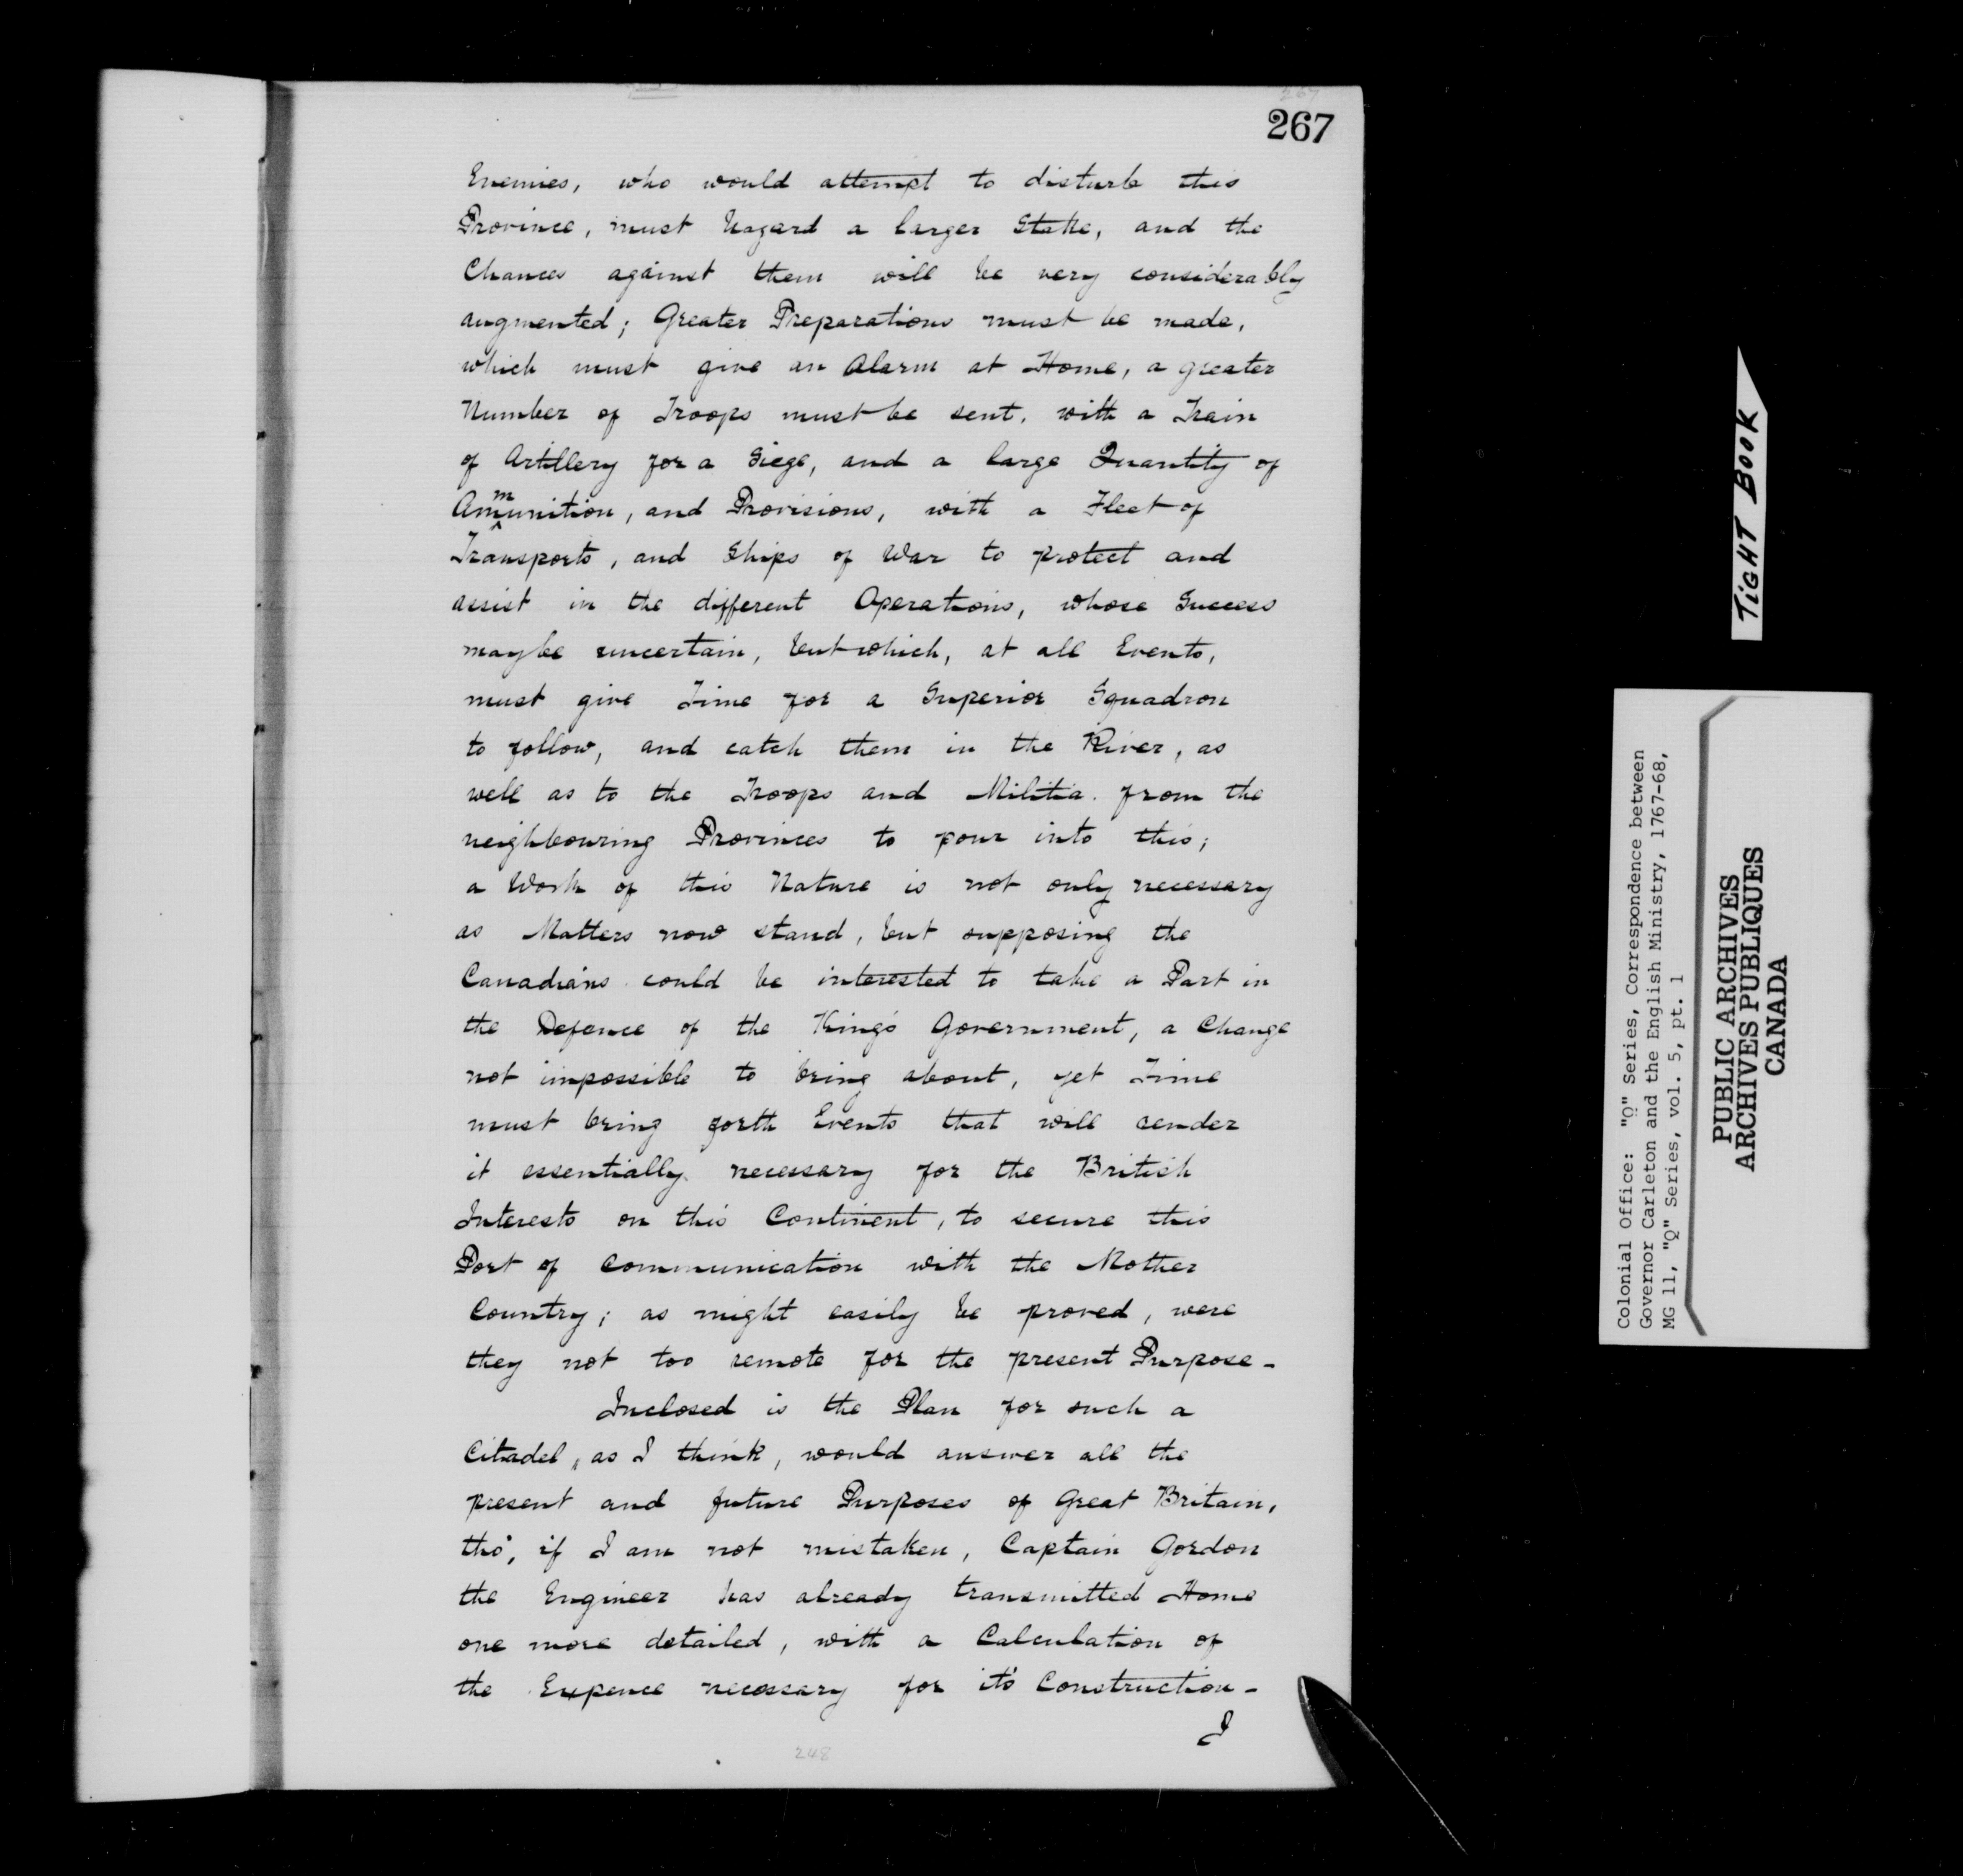 267
Enemies, who would attempt to disturb this
Province, must hazard a larger Stake, and the
Chances against them will be very considerably
augmented; Greater Preparations must be made,
which must give an Alarm at Home, a greater
Number of Troops must be sent, with a Train
of Artillery for a Siege, and a large Quantity of
Ammunition, and Provisions, with a Fleet of
Transports, and Ships of War to protect and
assist in the different Operations, whose Success
may be uncertain, but which, at all Events,
must give Time for a Superior Squadron
to follow, and catch them in the River, as
well as to the Troops and Militia from the
neighbouring Provinces to pour into this;
a Work of this Nature is not only necessary
as Matters now stand, but supposing the
Canadians could be interested to take a Part in
the Defence of the King's Government, a Change
not impossible to bring about, yet Time
must bring forth Events that will render
it essentially necessary for the British
Interests on this Continent, to secure this
Port of Communication with the Mother
Country; as might easily be proved, were
they not too remote for the present Purpose -
Inclosed is the Plan for such a
Citadel, as I think, would answer all the
present and future Purposes of Great Britain,
tho', if I am not mistaken, Captain Gordon
the Engineer has already transmitted Home
one more detailed, with a Calculation of
the Expence necessary for it's Construction -
I
248
TIGHT BOOK
Colonial Office: "Q" Series, Correspondence between
Governor Carleton and the English Ministry, 1767-68,
MG 11, "Q" Series, vol. 5, pt. 1
PUBLIC ARCHIVES
ARCHIVES PUBLIQUES
CANADA